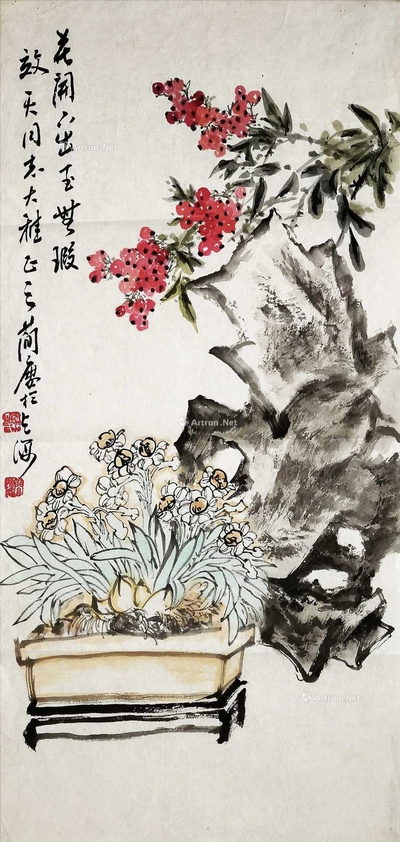 花開出玉無瑕
效天同志大雅正之簡廬於上海
Artron.Net
Artron.Net
Artron.Net